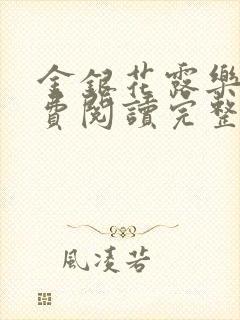 金銀花露樂
費閱讀完整
風淩若